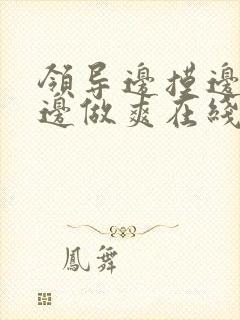 領导邊摸邊
邊做爽在綫
鳳舞